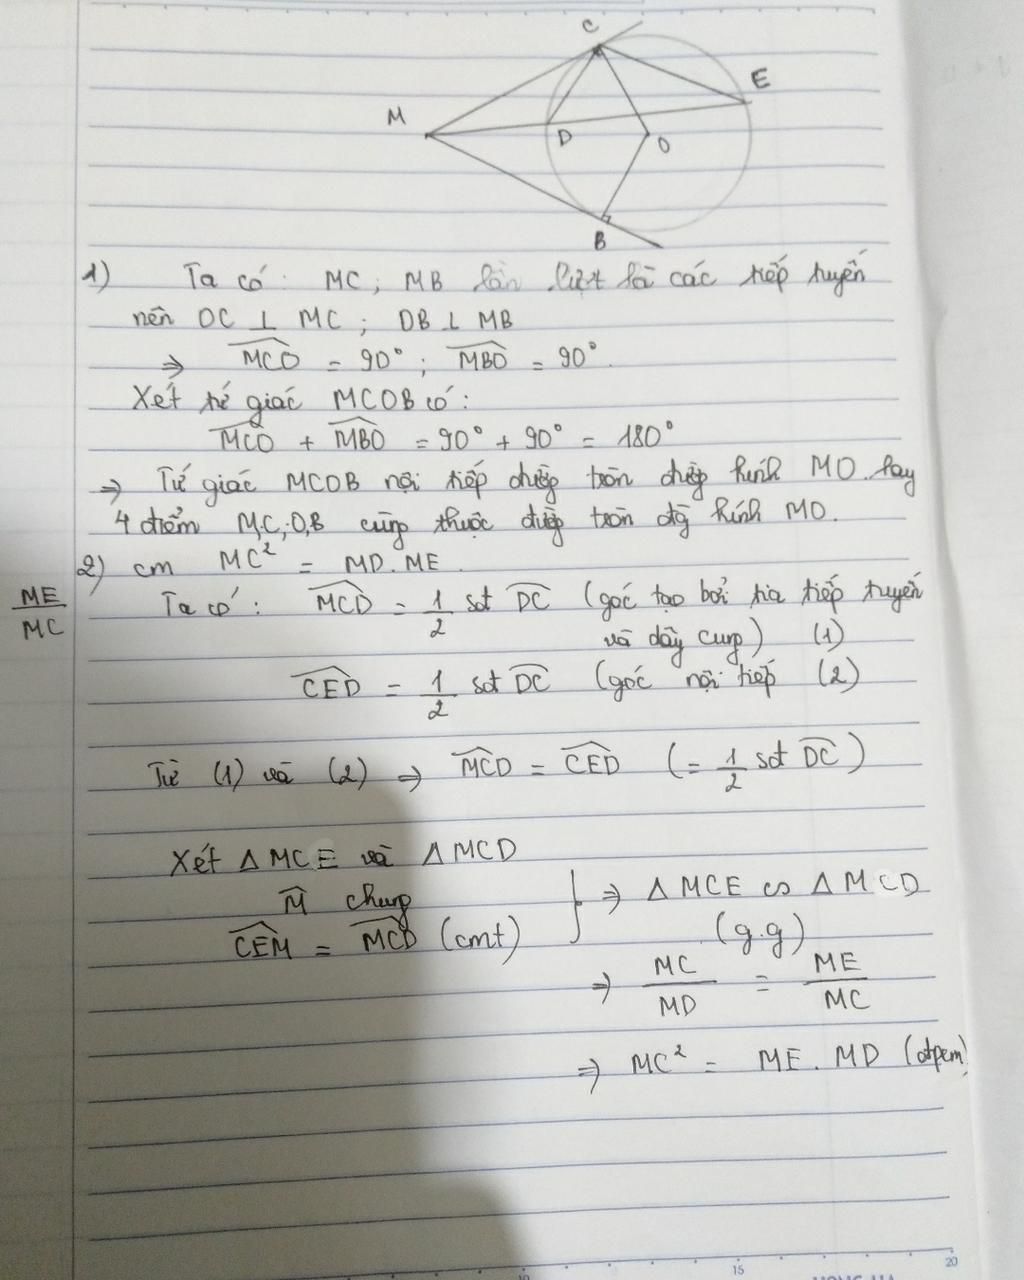 C
E
M
D
O
B
1) Ta có: MC; MB lần lượt là các tiếp tuyến
nên OC ⊥ MC; OB ⊥ MB
⇒ \widehat{MCO} = 90°; \widehat{MBO} = 90°.
Xét tứ giác MCOB có:
\widehat{MCO} + \widehat{MBO} = 90° + 90° = 180°
⇒ Tứ giác MCOB nội tiếp đường tròn đường kính MO. hay
4 điểm M,C,O,B cùng thuộc đường tròn đg kính MO.
2) cm MC² = MD.ME
ME/MC
Ta có: \widehat{MCD} = 1/2 sđ \widehat{DC} (góc tạo bởi tia tiếp tuyến
và dây cung) (1)
\widehat{CED} = 1/2 sđ \widehat{DC} (góc nội tiếp (2)
Từ (1) và (2) ⇒ \widehat{MCD} = \widehat{CED} (= 1/2 sđ \widehat{DC})
Xét Δ MCE và Δ MCD
\widehat{M} chung
\widehat{CEM} = \widehat{MCD} (cmt)
} ⇒ Δ MCE ∽ Δ MCD
(g.g)
⇒ MC/MD = ME/MC
⇒ MC² = ME. MD (đpcm)
15
20